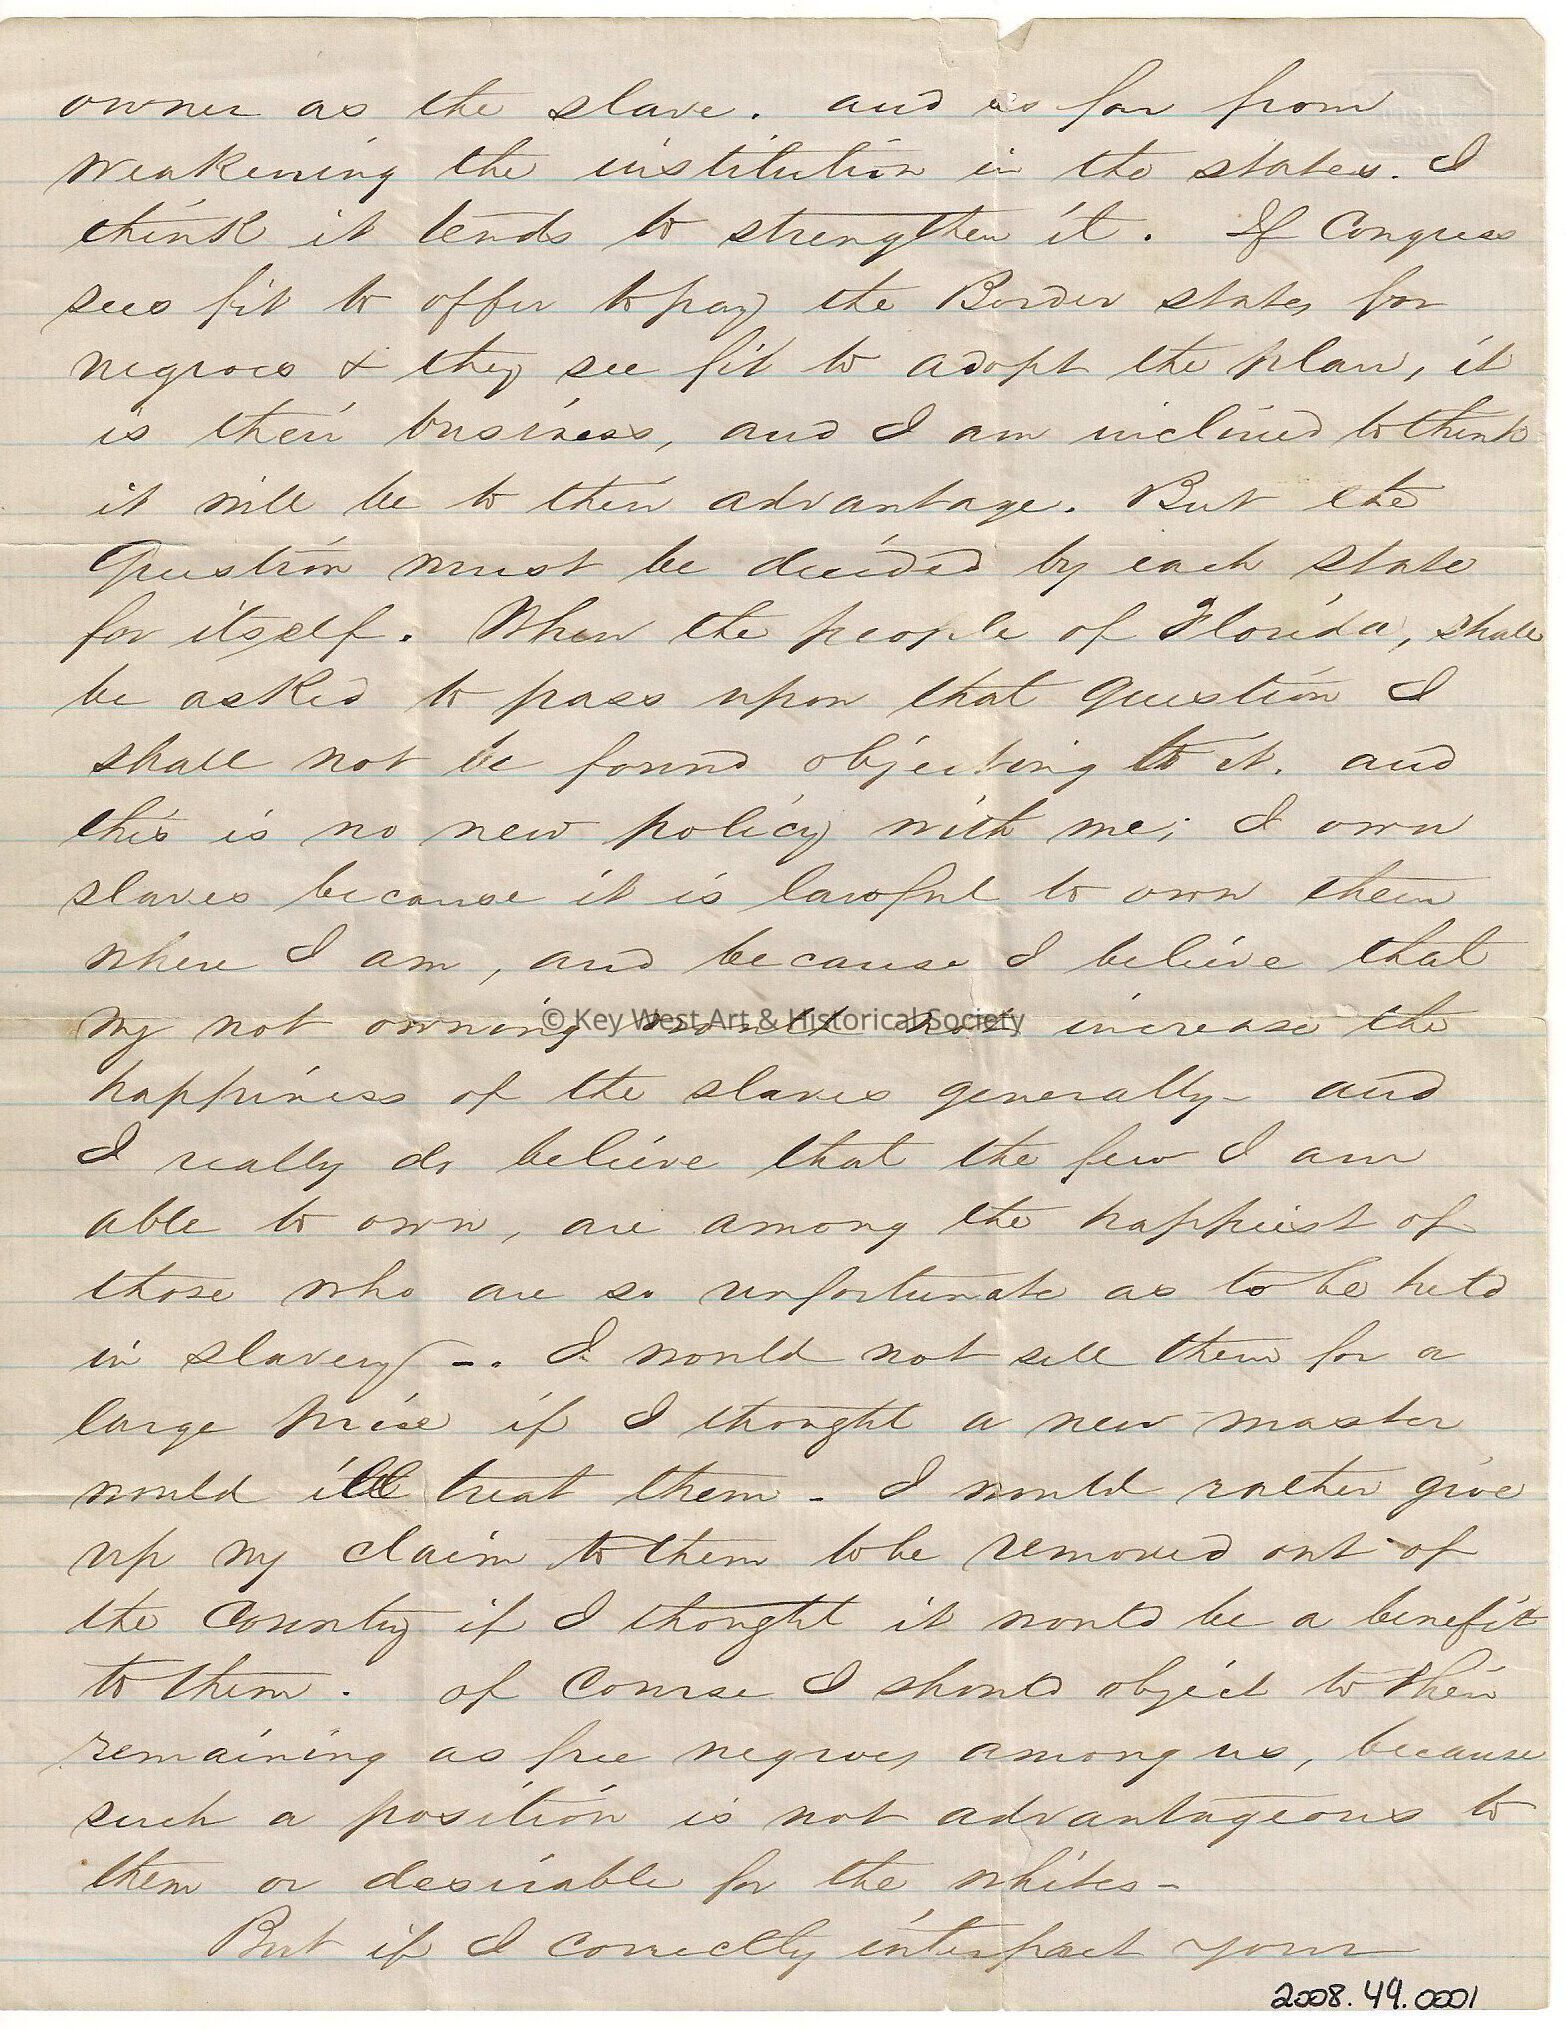 owner as the slave. and so far from
weakening the institution in the states. I
think it tends to strengthen it. If Congress
sees fit to offer to pay the Border states for
negroes & they see fit to adopt the plan, it
is their business, and I am inclined to think
it will be to their advantage. But the
Question must be decided by each state
for itself. When the people of Florida, shall
be asked to pass upon that question I
shall not be found objecting to it. and
this is no new policy with me; I own
slaves because it is lawful to own them
where I am, and because I believe that
my not owning would not increase the
© Key West Art & Historical Society
happiness of the slaves generally - and
I really do believe that the few I am
able to own, are among the happiest of
those who are so unfortunate as to be held
in slavery -. I would not sell them for a
large price if I thought a new master
would ill treat them - I would rather give
up my claim to them to be removed out of
the Country if I thought it would be a benefit
to them. of course I should object to their
remaining as free negroes among us, because
such a position is not advantageous to
them or desirable for the whites -
But if I correctly interpret your
2008.49.0001